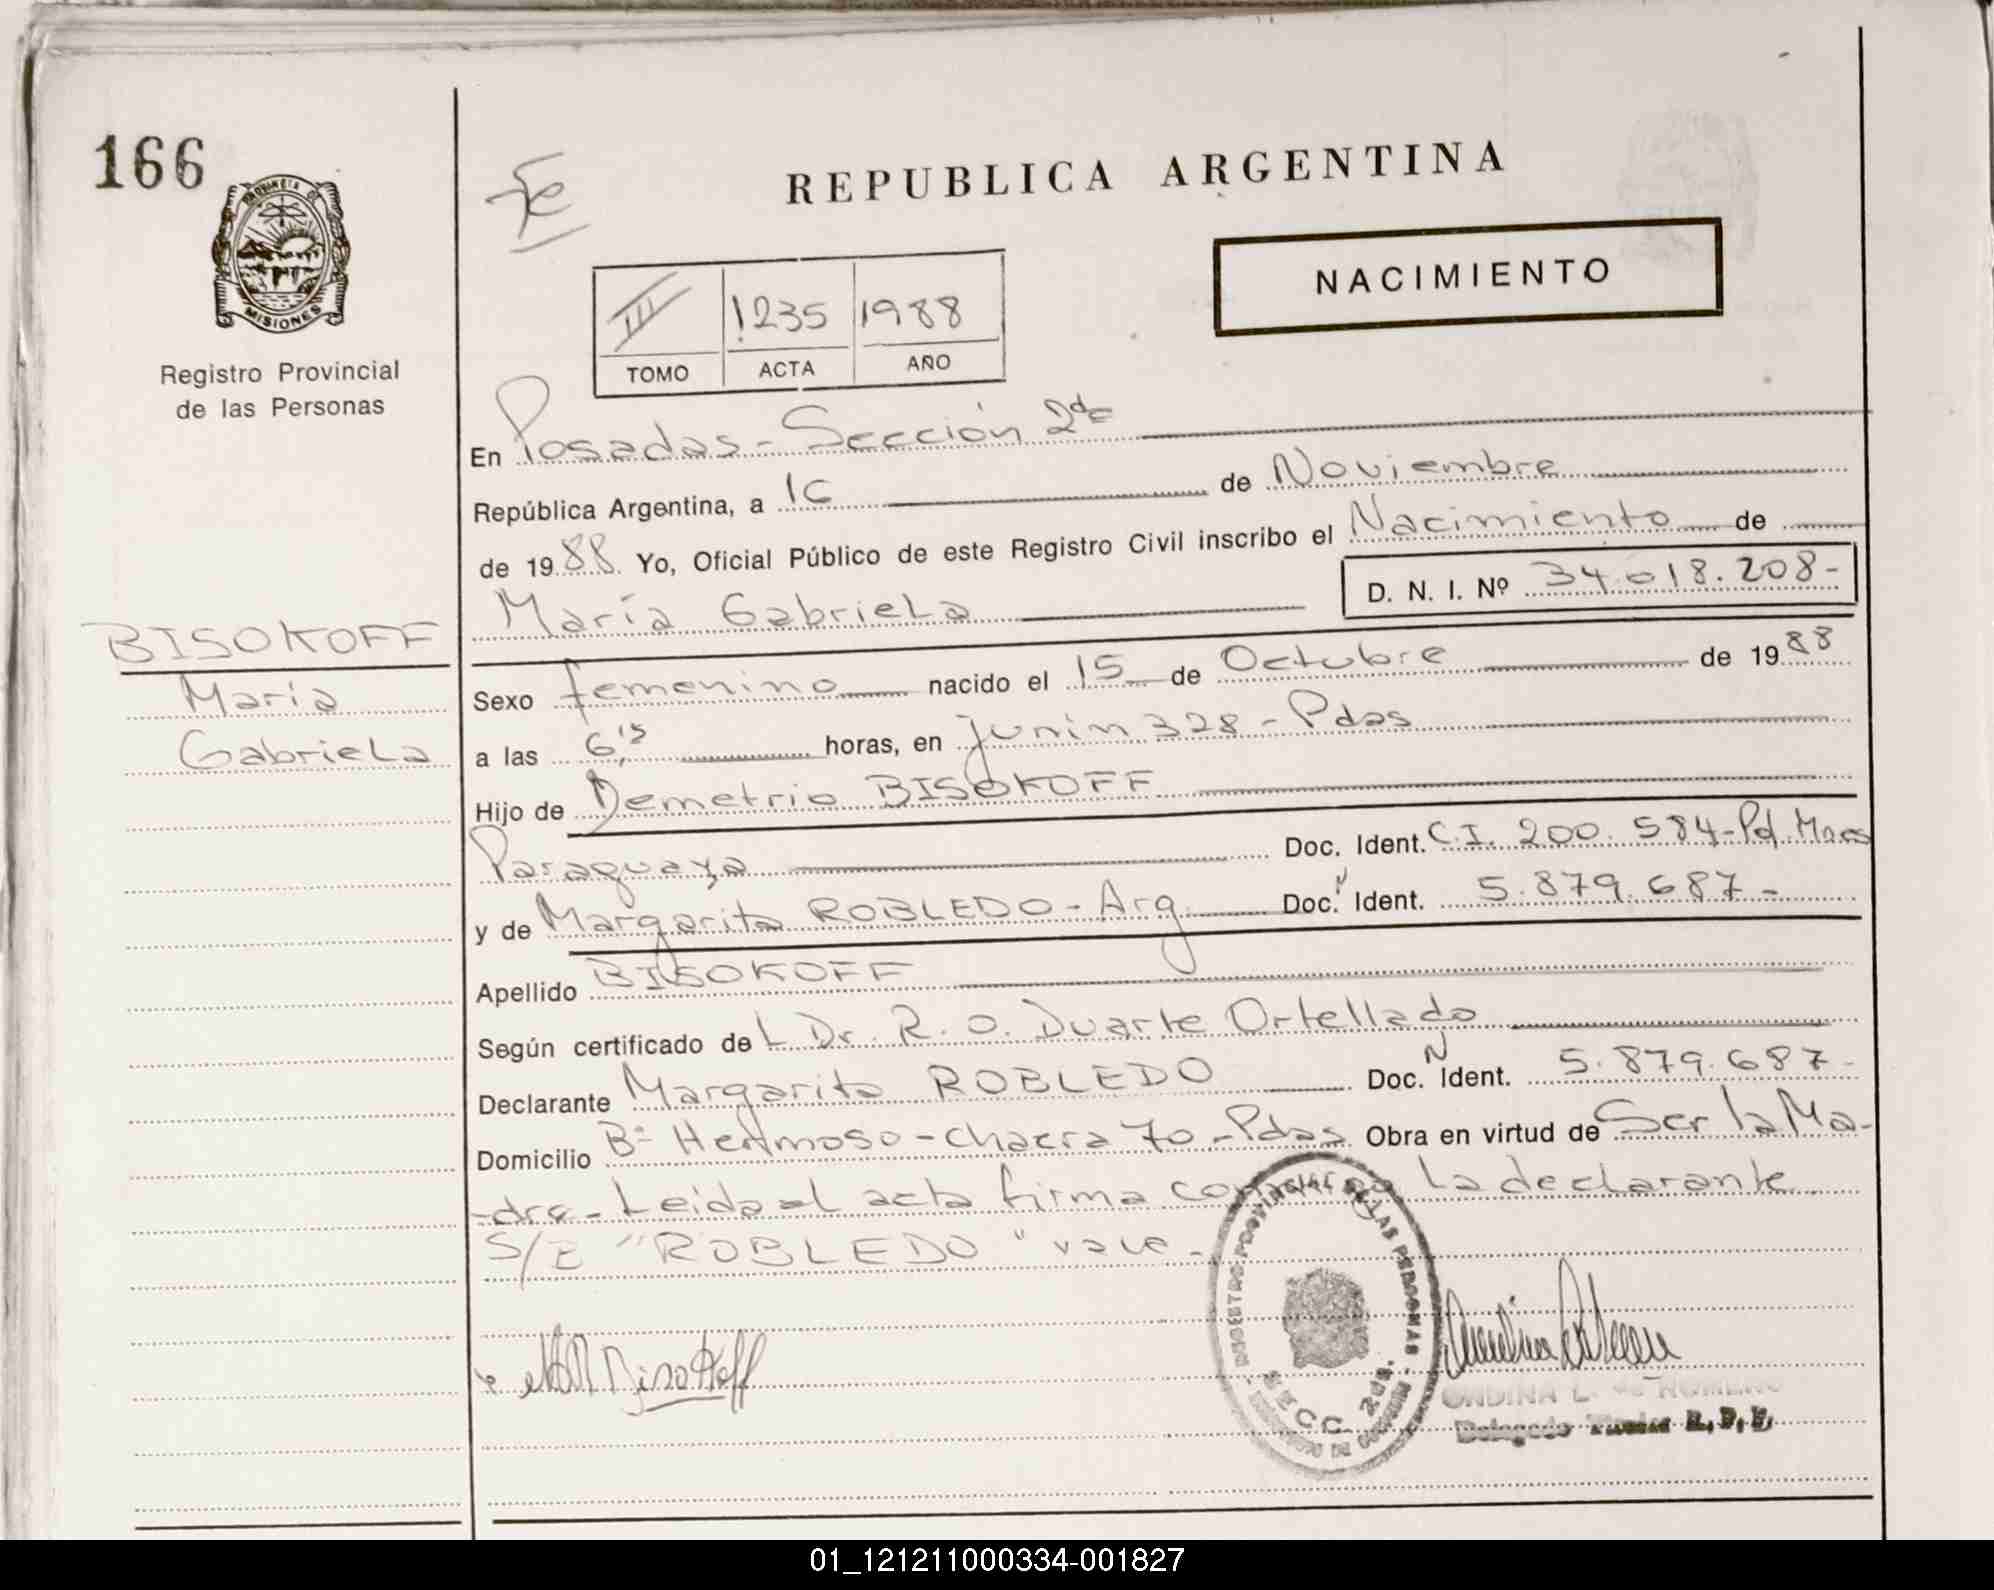 166
REPUBLICA ARGENTINA
PROVINCIA DE
MISIONES
Registro Provincial
de las Personas
NACIMIENTO
III 1235 1988
TOMO ACTA AÑO
En Posadas - Sección 2da
República Argentina, a 16 de Noviembre
de 1988 Yo, Oficial Público de este Registro Civil inscribo el Nacimiento de
María Gabriela D. N. I. Nº 34.018.208-
BISOKOFF
María
Gabriela
Sexo femenino nacido el 15 de Octubre de 1988
a las 6,15 horas, en Junín 328 - Pdas
Hijo de Demetrio BISOKOFF
Paraguaya Doc. Ident. C.I. 200.584-Pol. Mnes
y de Margarita ROBLEDO - Arg Doc. N Ident. 5.879.687-
Apellido BISOKOFF
Según certificado de L Dr. R. O. Duarte Ortellado
Declarante Margarita ROBLEDO Doc. N Ident. 5.879.687-
Domicilio Bº Hermoso - chacra 70 - Pdas Obra en virtud de Ser la Ma-
-dre - Leida el acta firma la declarante
S/E "ROBLEDO" vale -
REGISTRO PROVINCIAL DE LAS PERSONAS
SECC. 2da.
ONDINA L. de ROMERO
Delegado Titular R. P. P.
01_121211000334-001827